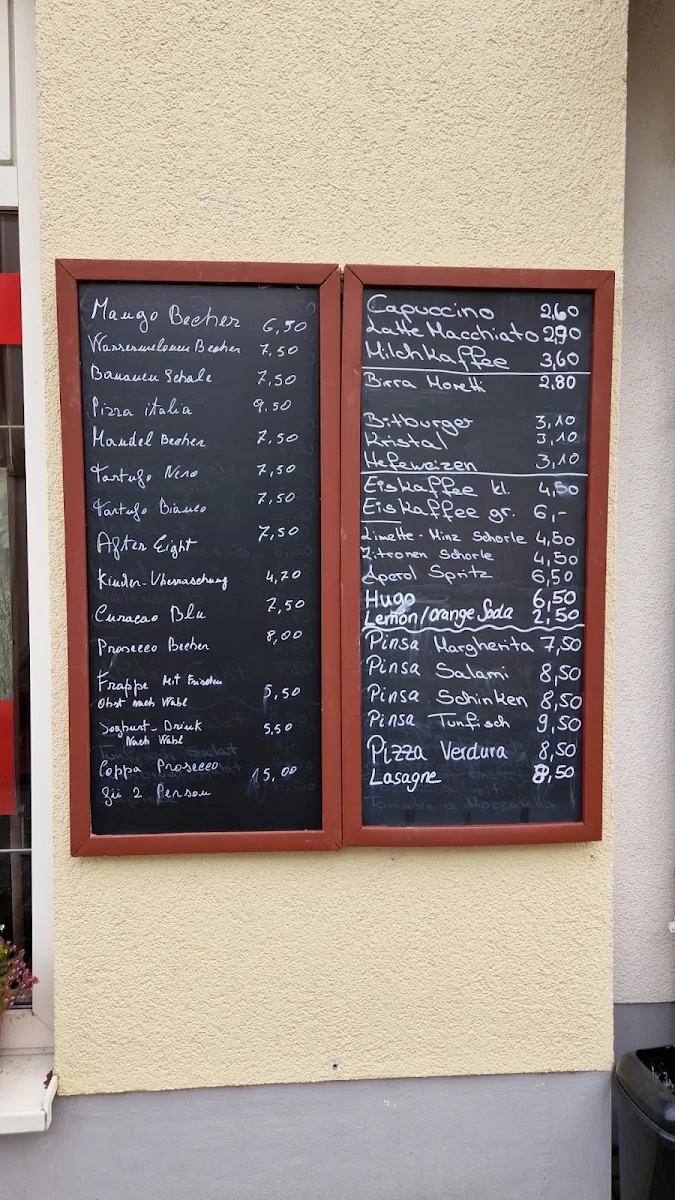 Mango Becher 6,50
Wassermelonen Becher 7,50
Bananen Schale 7,50
Pizza italia 9.50
Mandel Becher 7,50
Tartufo Nero 7,50
Tartufo Bianco 7,50
After Eight 7,50
Kinder-Überraschung 4,70
Curacao Blu 7,50
Prosecco Becher 8,00
Frappe Mit Frischen
Obst nach Wahl 5,50
Joghurt-Drink 5,50
Nach Wahl
Coppa Prosecco 15,00
für 2 Person
Capuccino 2,60
Latte Macchiato 2,90
Milchkaffee 3,60
Birra Moretti 2,80
Bitburger 3,10
Kristal 3,10
Hefeweizen 3,10
Eiskaffee kl. 4,50
Eiskaffee gr. 6,-
Limette-Minz Schorle 4,50
Zitronen Schorle 4,50
Aperol Spritz 6,50
Hugo 6,50
Lemon/orange Soda 2,50
Pinsa Margherita 7,50
Pinsa Salami 8,50
Pinsa Schinken 8,50
Pinsa Tunfisch 9,50
Pizza Verdura 8,50
Lasagne 8,50